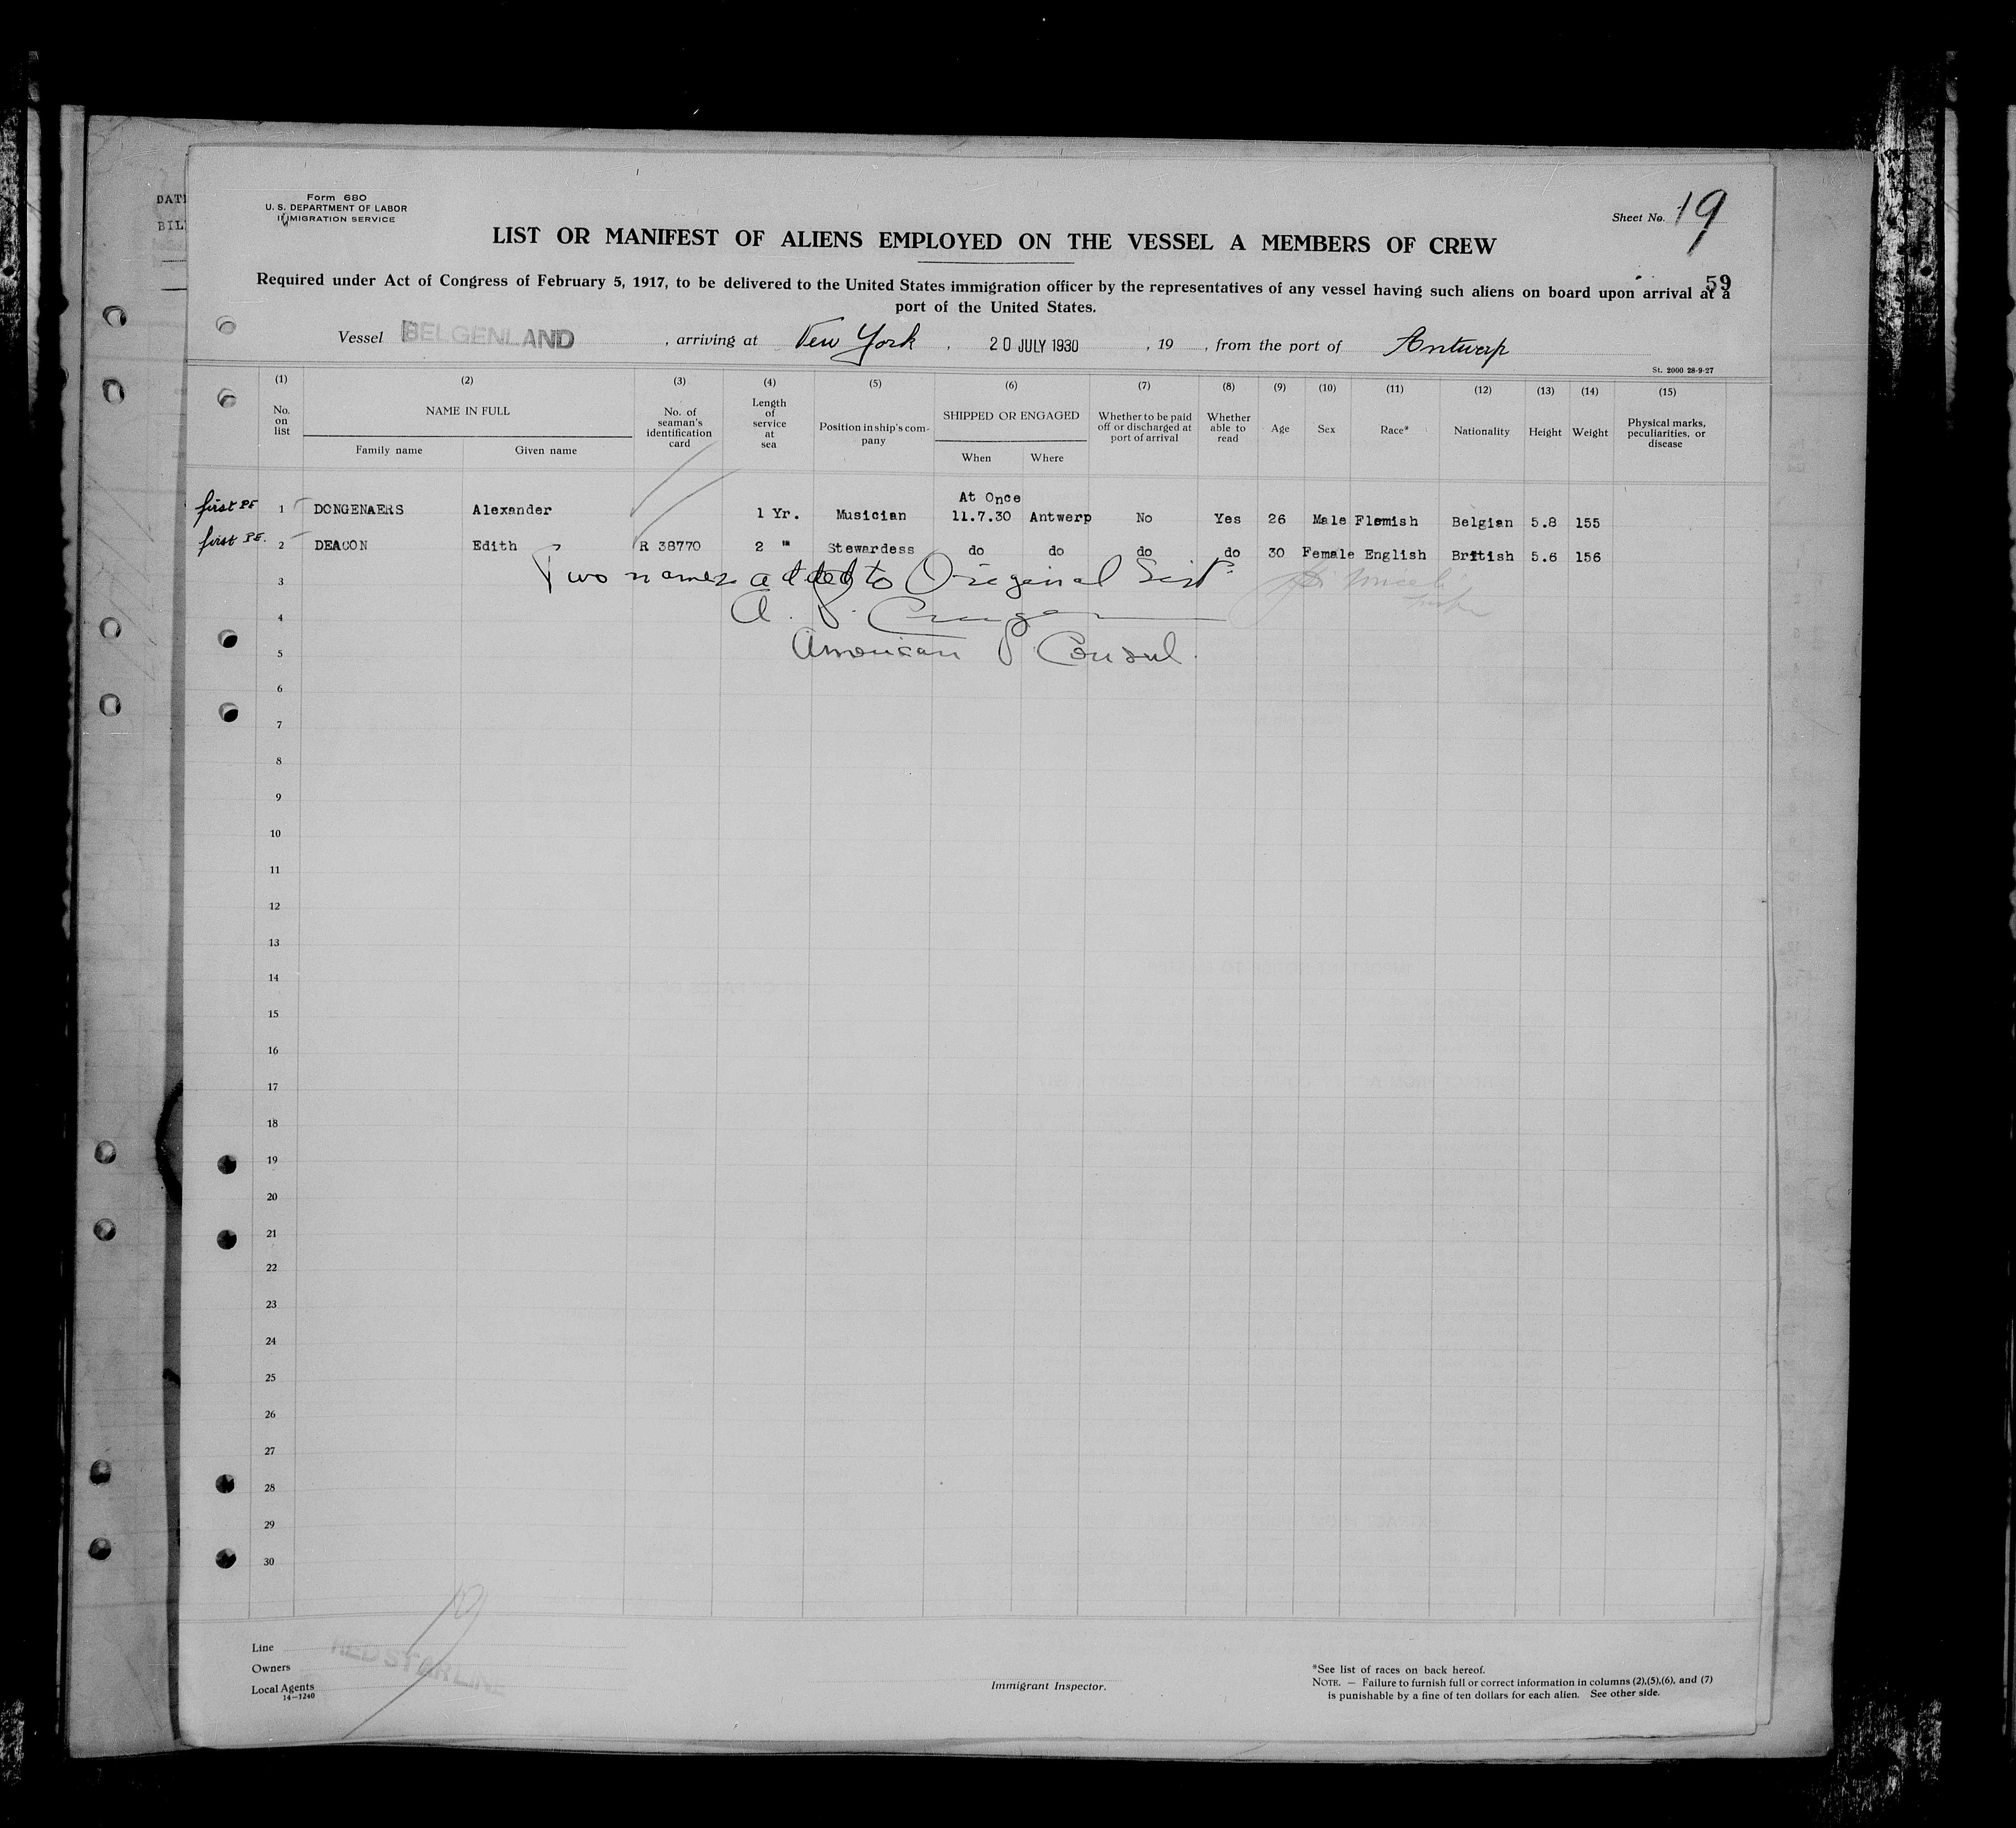 DATE
BIL
Form 680
U. S. DEPARTMENT OF LABOR
IMMIGRATION SERVICE
Sheet No. 19
LIST OR MANIFEST OF ALIENS EMPLOYED ON THE VESSEL A MEMBERS OF CREW
59
Required under Act of Congress of February 5, 1917, to be delivered to the United States immigration officer by the representatives of any vessel having such aliens on board upon arrival at a
port of the United States.
Vessel BELGENLAND , arriving at New York , 20 JULY 1930 , 19 , from the port of Antwerp
St. 2000 28-9-27
(1) (2) (3) (4) (5) (6) (7) (8) (9) (10) (11) (12) (13) (14) (15)
No. on list NAME IN FULL No. of seaman's identification card Length of service at sea Position in ship's company SHIPPED OR ENGAGED Whether to be paid off or discharged at port of arrival Whether able to read Age Sex Race* Nationality Height Weight Physical marks, peculiarities, or disease
Family name Given name When Where
At Once
first PE 1 DONGENAERS Alexander 1 Yr. Musician 11.7.30 Antwerp No Yes 26 Male Flemish Belgian 5.8 155
first PE. 2 DEACON Edith R 38770 2 " Stewardess do do do do 30 Female English British 5.6 156
3 Two names added to Original List
4 A.
5 American Consul.
6
7
8
9
10
11
12
13
14
15
16
17
18
19
20
21
22
23
24
25
26
27
28
29
30
19
Line
Owners
RED STAR LINE
Local Agents
14—1240
Immigrant Inspector.
*See list of races on back hereof.
NOTE. — Failure to furnish full or correct information in columns (2),(5),(6), and (7)
is punishable by a fine of ten dollars for each alien. See other side.